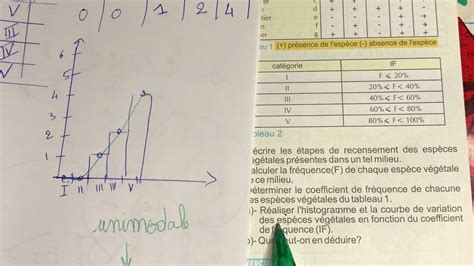 V 0 0 1 2 4
III
IV
V
6
5
4
3
2
1
I II III IV V
unimodal
(+) présence de l'espèce (-) absence de l'espèce
catégorie IF
I F < 20%
II 20%≤ F< 40%
III 40%≤ F< 60%
IV 60%≤ F< 80%
V 80%≤ F< 100%
bleau 2
écrire les étapes de recensement des espèces
végétales présentes dans un tel milieu.
alculer la fréquence(F) de chaque espèce végétale
ce milieu.
éterminer le coefficient de fréquence de chacune
es espèces végétales du tableau 1.
)- Réaliser l'histogramme et la courbe de variation
des espèces végétales en fonction du coefficient
de fréquence (IF).
)- Que peut-on en déduire?